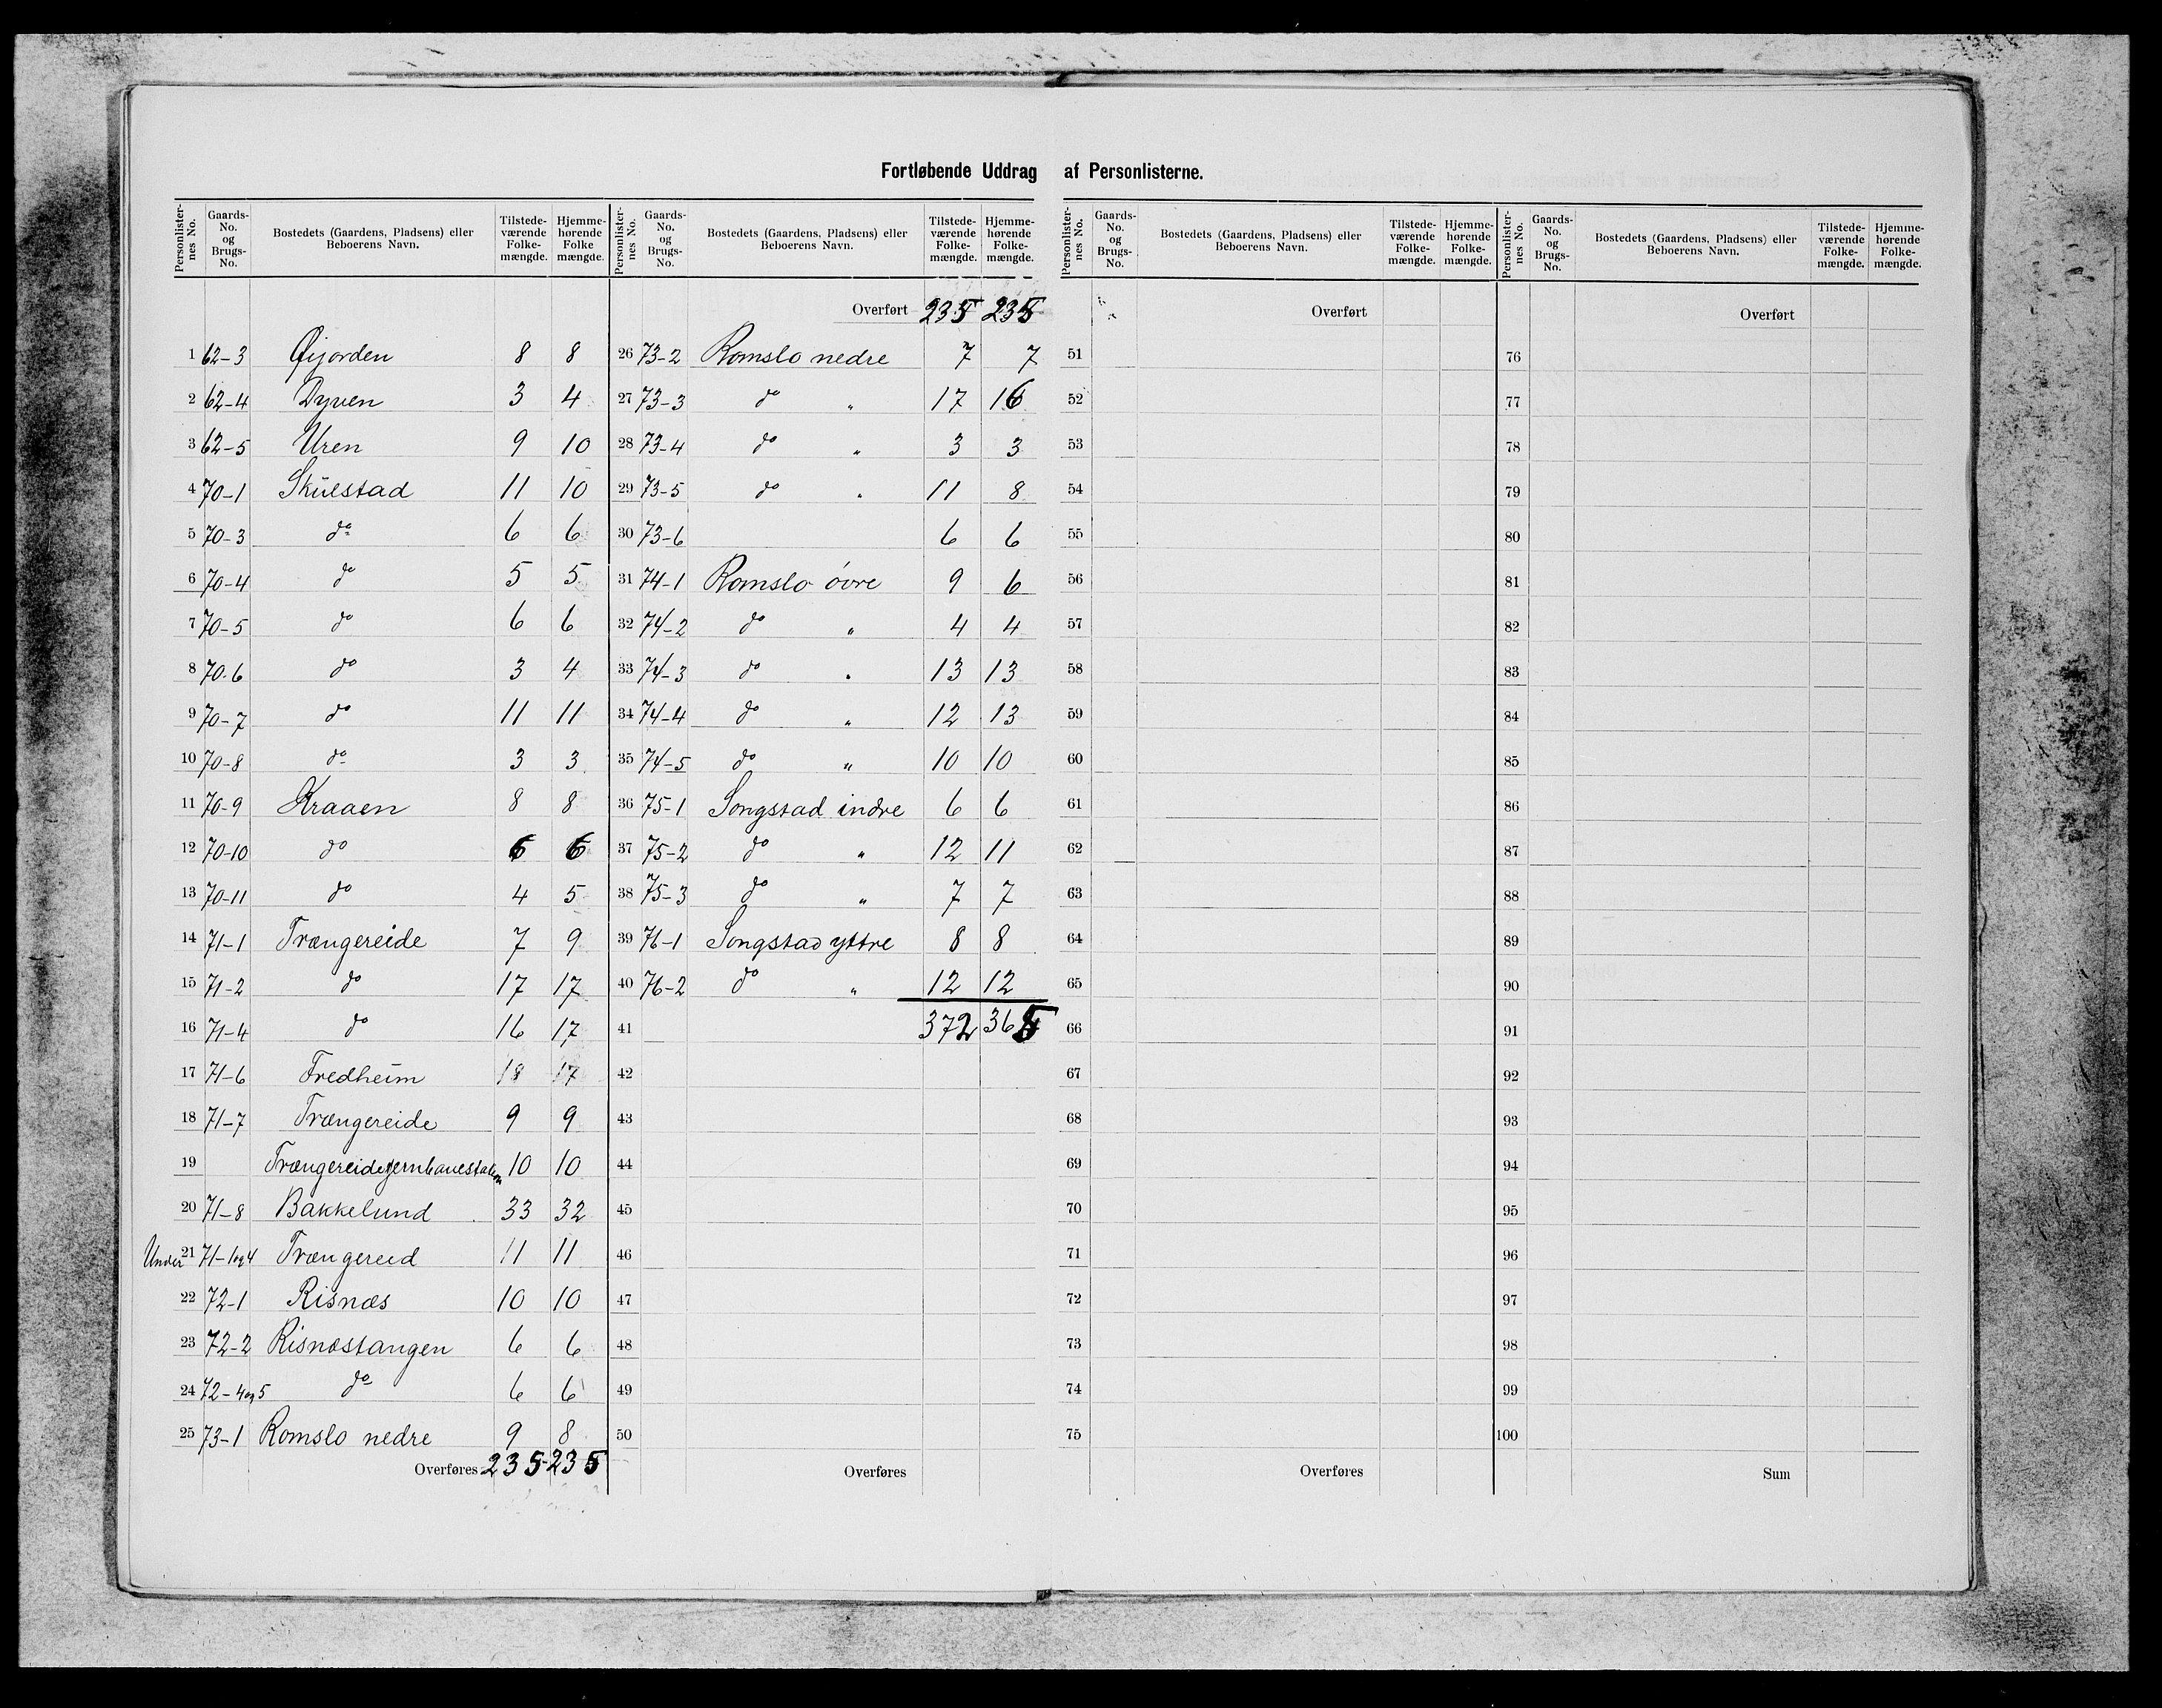 Fortløbende Uddrag af Personlisterne.
Personlister-nes No. | Gaards-No. og Brugs-No. | Bostedets (Gaardens, Pladsens) eller Beboerens Navn. | Tilstede-værende Folke-mængde. | Hjemme-hørende Folke mængde.
1 62-3 Øijorden 8 8
2 62-4 Dyven 3 4
3 62-5 Uren 9 10
4 70-1 Skulestad 11 10
5 70-3 do 6 6
6 70-4 do 5 5
7 70-5 do 6 6
8 70-6 do 3 4
9 70-7 do 11 11
10 70-8 do 3 3
11 70-9 Kraaen 8 8
12 70-10 do 6 6
13 70-11 do 4 5
14 71-1 Trængereide 7 9
15 71-2 do 17 17
16 71-4 do 16 17
17 71-6 Fredheim 18 17
18 71-7 Trængereide 9 9
19 Trængereide jernbanestation 10 10
20 71-8 Bakkelund 33 32
Under 21 71-1og4 Trængereid 11 11
22 72-1 Risnæs 10 10
23 72-2 Risnæstangen 6 6
24 72-4og5 do 6 6
25 73-1 Romslo nedre 9 8
Overføres 235 235
Personlister-nes No. | Gaards-No. og Brugs-No. | Bostedets (Gaardens, Pladsens) eller Beboerens Navn. | Tilstede-værende Folke-mængde. | Hjemme-hørende Folke-mængde.
Overført 235 235
26 73-2 Romslo nedre 7 7
27 73-3 do " 17 16
28 73-4 do " 3 3
29 73-5 do " 11 8
30 73-6 6 6
31 74-1 Romslo óvre 9 6
32 74-2 do " 4 4
33 74-3 do " 13 13
34 74-4 do " 12 13
35 74-5 do " 10 10
36 75-1 Songstad indre 6 6
37 75-2 do " 12 11
38 75-3 do " 7 7
39 76-1 Songstad yttre 8 8
40 76-2 do " 12 12
41 372 365
42
43
44
45
46
47
48
49
50
Overføres
Personlister-nes No. | Gaards-No. og Brugs-No. | Bostedets (Gaardens, Pladsens) eller Beboerens Navn. | Tilstede-værende Folke-mængde. | Hjemme-hørende Folke-mængde.
Overført
51
52
53
54
55
56
57
58
59
60
61
62
63
64
65
66
67
68
69
70
71
72
73
74
75
Overføres
Personlister-nes No. | Gaards-No. og Brugs-No. | Bostedets (Gaardens, Pladsens) eller Beboerens Navn. | Tilstede-værende Folke-mængde. | Hjemme-hørende Folke-mængde.
Overført
76
77
78
79
80
81
82
83
84
85
86
87
88
89
90
91
92
93
94
95
96
97
98
99
100
Sum